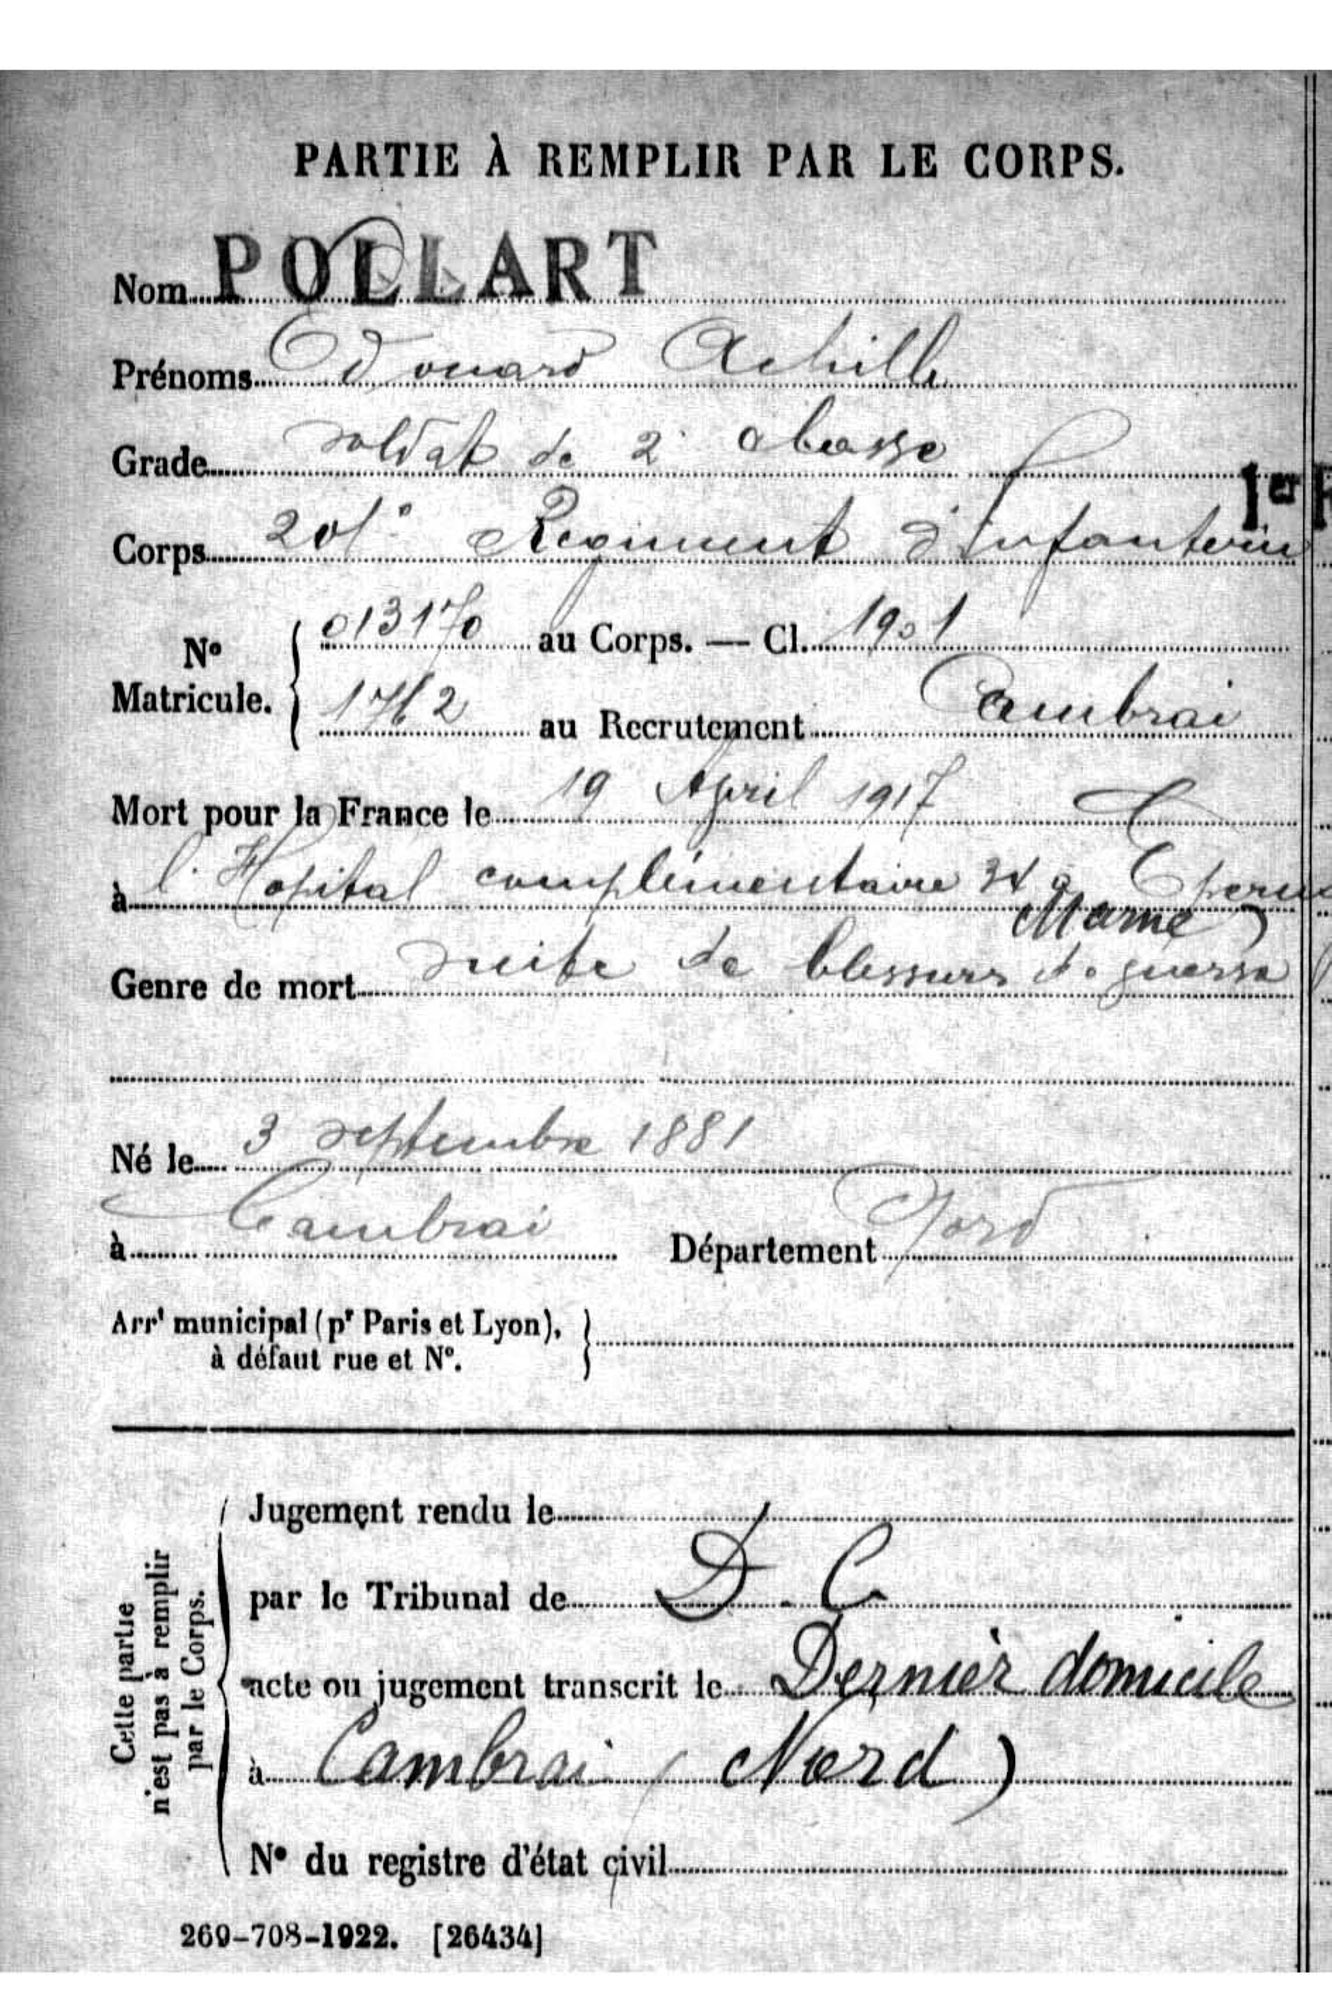 PARTIE À REMPLIR PAR LE CORPS.
Nom POLLART
Prénoms Edouard Achille
Grade soldat de 2e classe
1er R
Corps 201e Régiment d'Infanterie
No Matricule. { 013170 au Corps. — Cl. 1901
1762 au Recrutement Cambrai
Mort pour la France le 19 April 1917
à l'Hopital complémentaire 34 a Epern
Marne)
Genre de mort suite de blessures de guerre
Né le 3 septembre 1881
à Cambrai Département Nord
Arrt municipal (pr Paris et Lyon), }
à défaut rue et No.
Cette partie
n'est pas à remplir
par le Corps.
Jugement rendu le
par le Tribunal de D. C
acte ou jugement transcrit le Dernier domicile
à Cambrai (Nord)
No du registre d'état civil
269-708-1922. [26434]